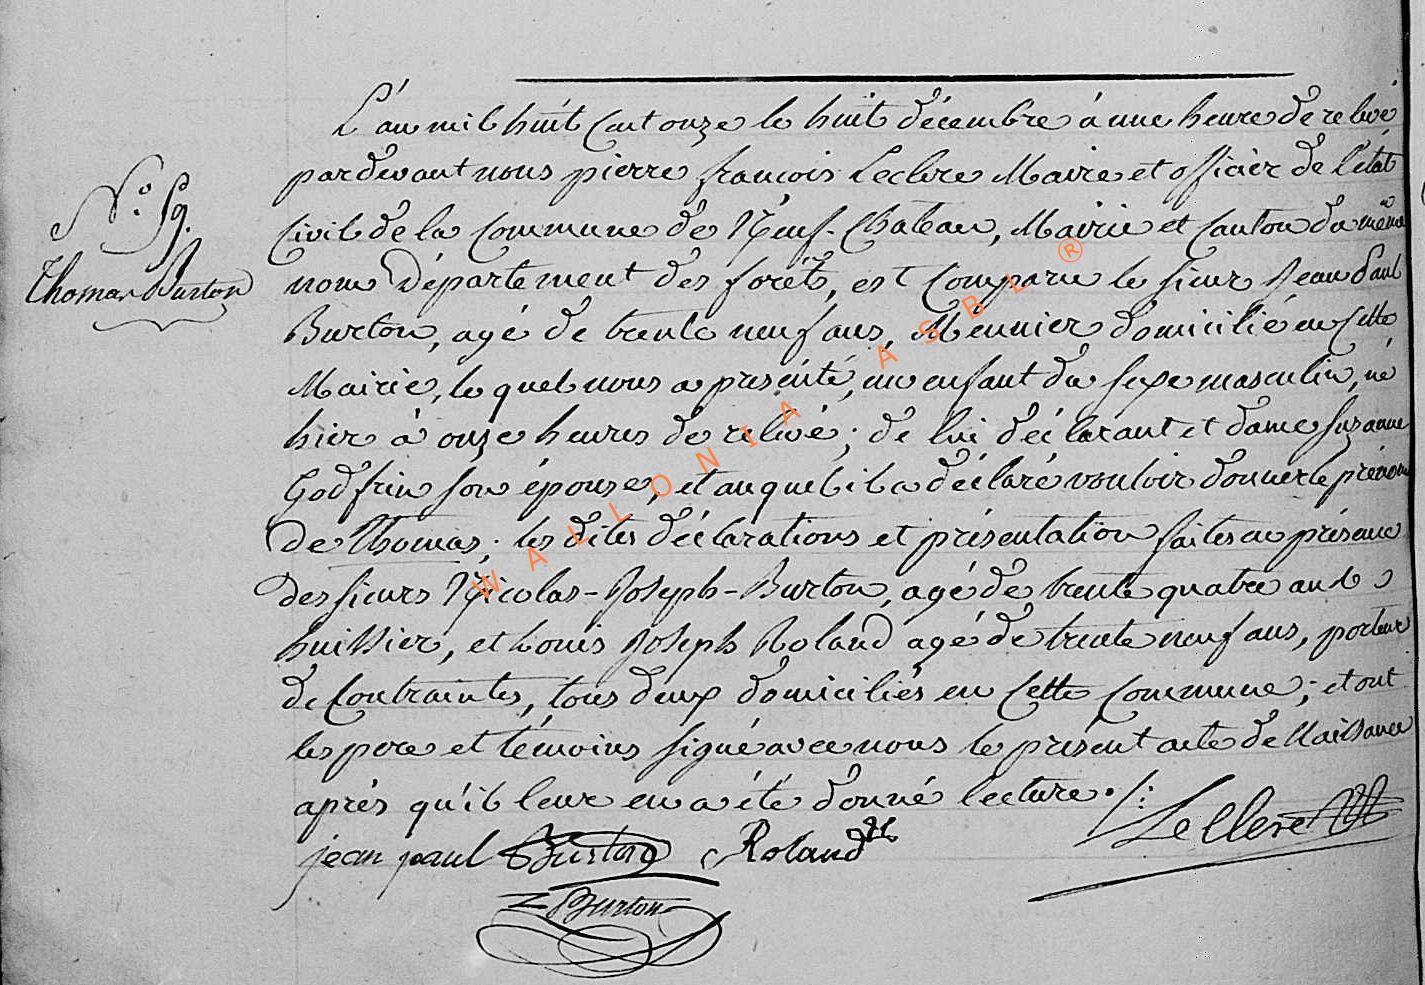 L'an mil huit Cent onze le huit décembre à une heure de relevé
pardevant nous pierre françois Leclere Maire et officier de l'état
Civil de la Commune de Neuf-Chateau, Mairie et Canton du même
N.o 59.
Thomas Burton
nom Département des forêts, est Comparu le sieur Jean Paul
Burton, agé de trente neuf ans, Meunier domicilié en Cette
Mairie, le quel nous a présenté, un enfant du sexe masculin, né
hier à onze heures de relevé; de lui déclarant et dame Suzanne
Godfrin son épouse, et auquel il a déclaré vouloir donner le prénom
de Thomas; les dites déclarations et présentation faites en présence
des sieurs Nicolas-Joseph-Burton, agé de trente quatre ans
huissier, et Louis Joseph Roland agé de trente neuf ans, porteur
de Contraintes, tous deux domiciliés en Cette Commune; et ont
les pere et témoins signé avec nous le présent acte de Naissance
après qu'il leur en a été donné lecture./:
jean paul Burton Roland Leclere
Burton
WALLONIA ASBL ®